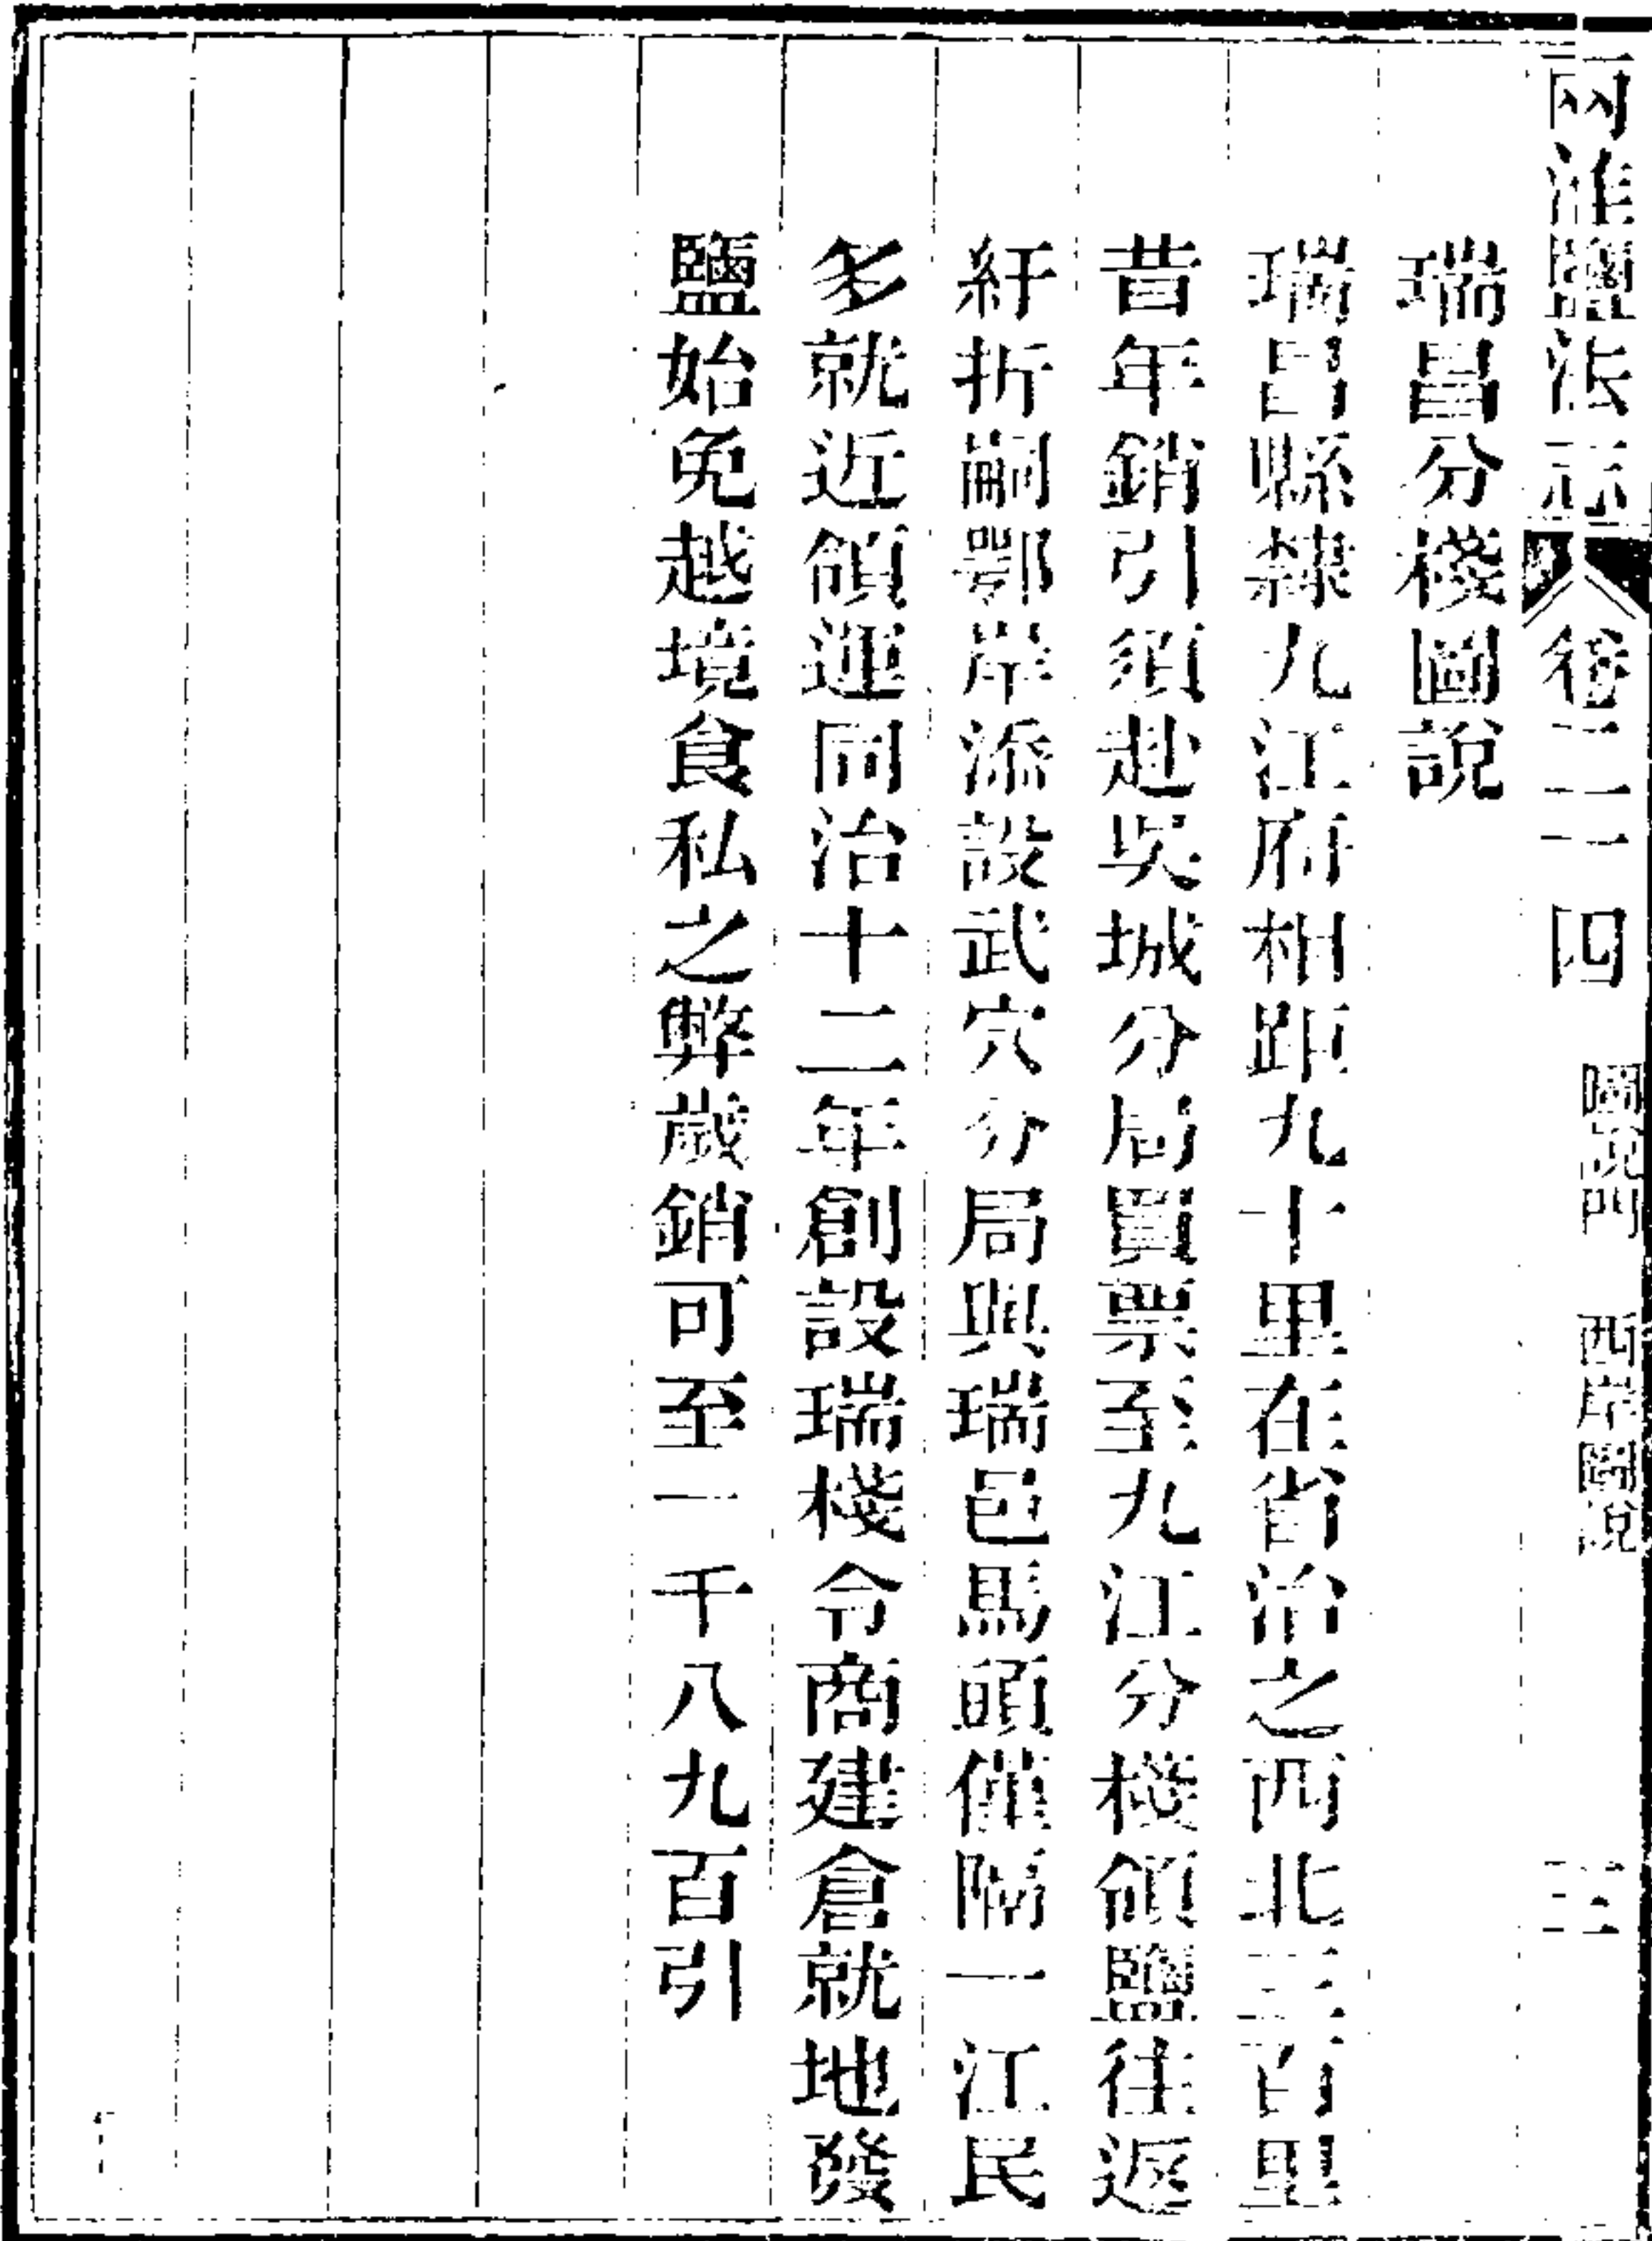 兩淮鹽法志 卷二十四 圖說門 西岸圖說 三
瑞昌分棧圖說
瑞昌縣隸九江府相距九十里在省治之西北三百里
昔年銷引須赴吳城分局買票至九江分棧領鹽往返
紆折嗣鄂岸添設武穴分局與瑞邑馬頭僅隔一江民
多就近領運同治十二年創設瑞棧令商建倉就地發
鹽始免越境食私之弊歲銷可至一千八九百引